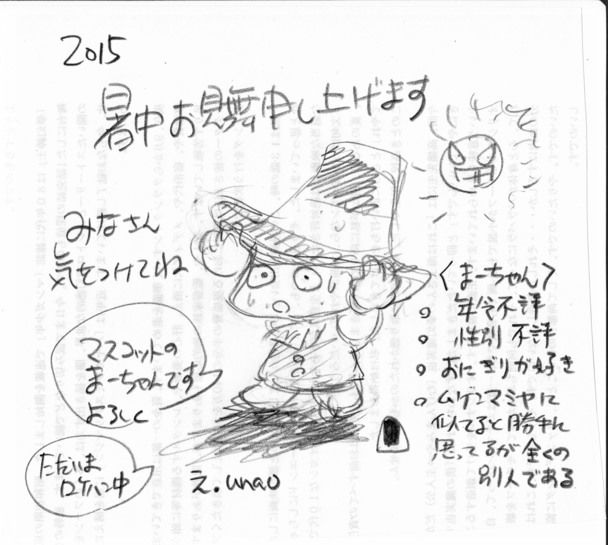 2015
暑中お見舞申し上げます
みなさん
気をつけてね
マスコットの
まーちゃんです
よろしく
ただいま
ロケハン中
え.unao
〈まーちゃん〉
。年令不評
。性別不評
。おにぎりが好き
。ムゲンマミヤに
似てると勝手に
思ってるが全くの
別人である